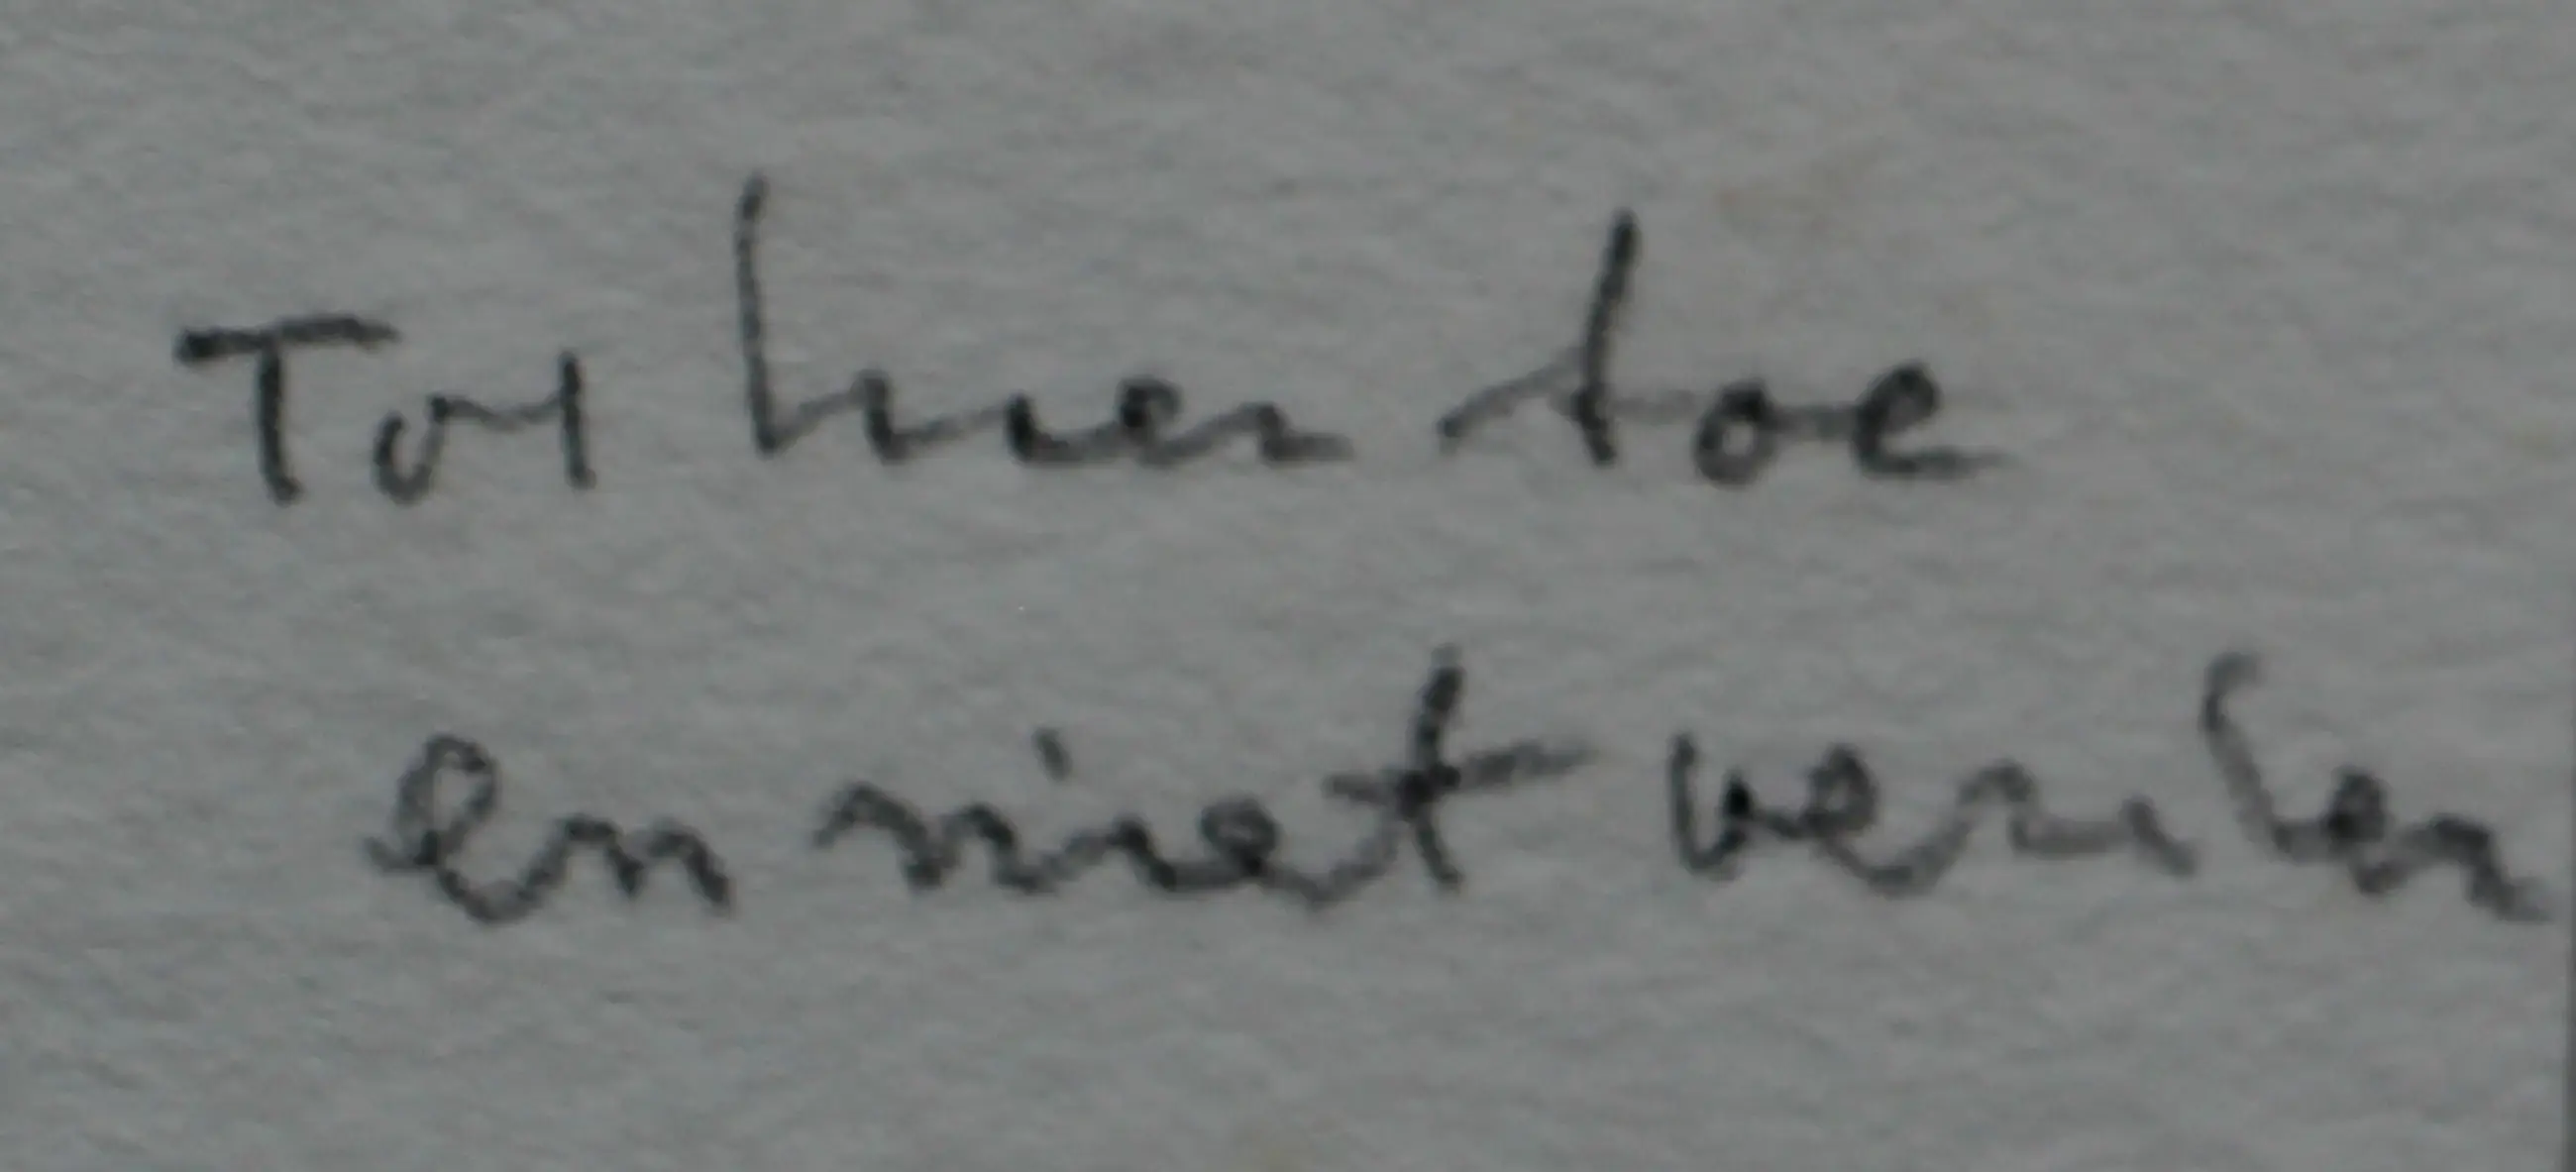 Tot hier toe
en niet verder